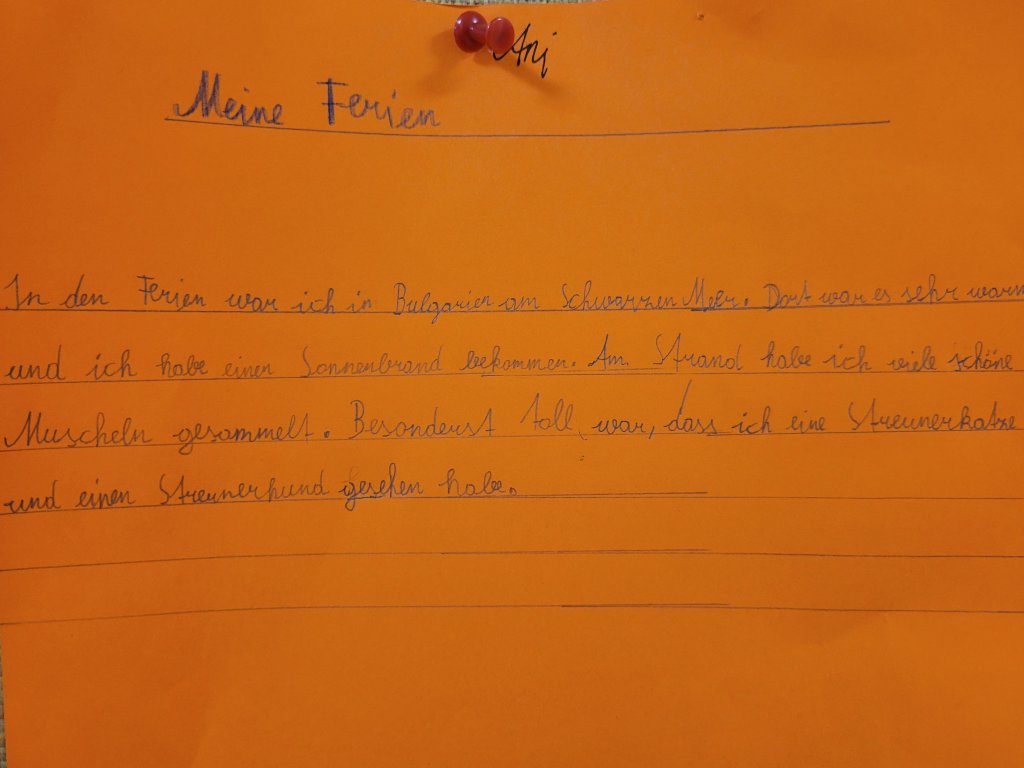 Ani
Meine Ferien
In den Ferien war ich in Bulgarien am Schwarzen Meer. Dort war es sehr warm
und ich habe einen Sonnenbrand bekommen. Am Strand habe ich viele schöne
Muscheln gesammelt. Besonderst toll war, dass ich eine Streunerkatze
und einen Streunerhund gesehen habe.